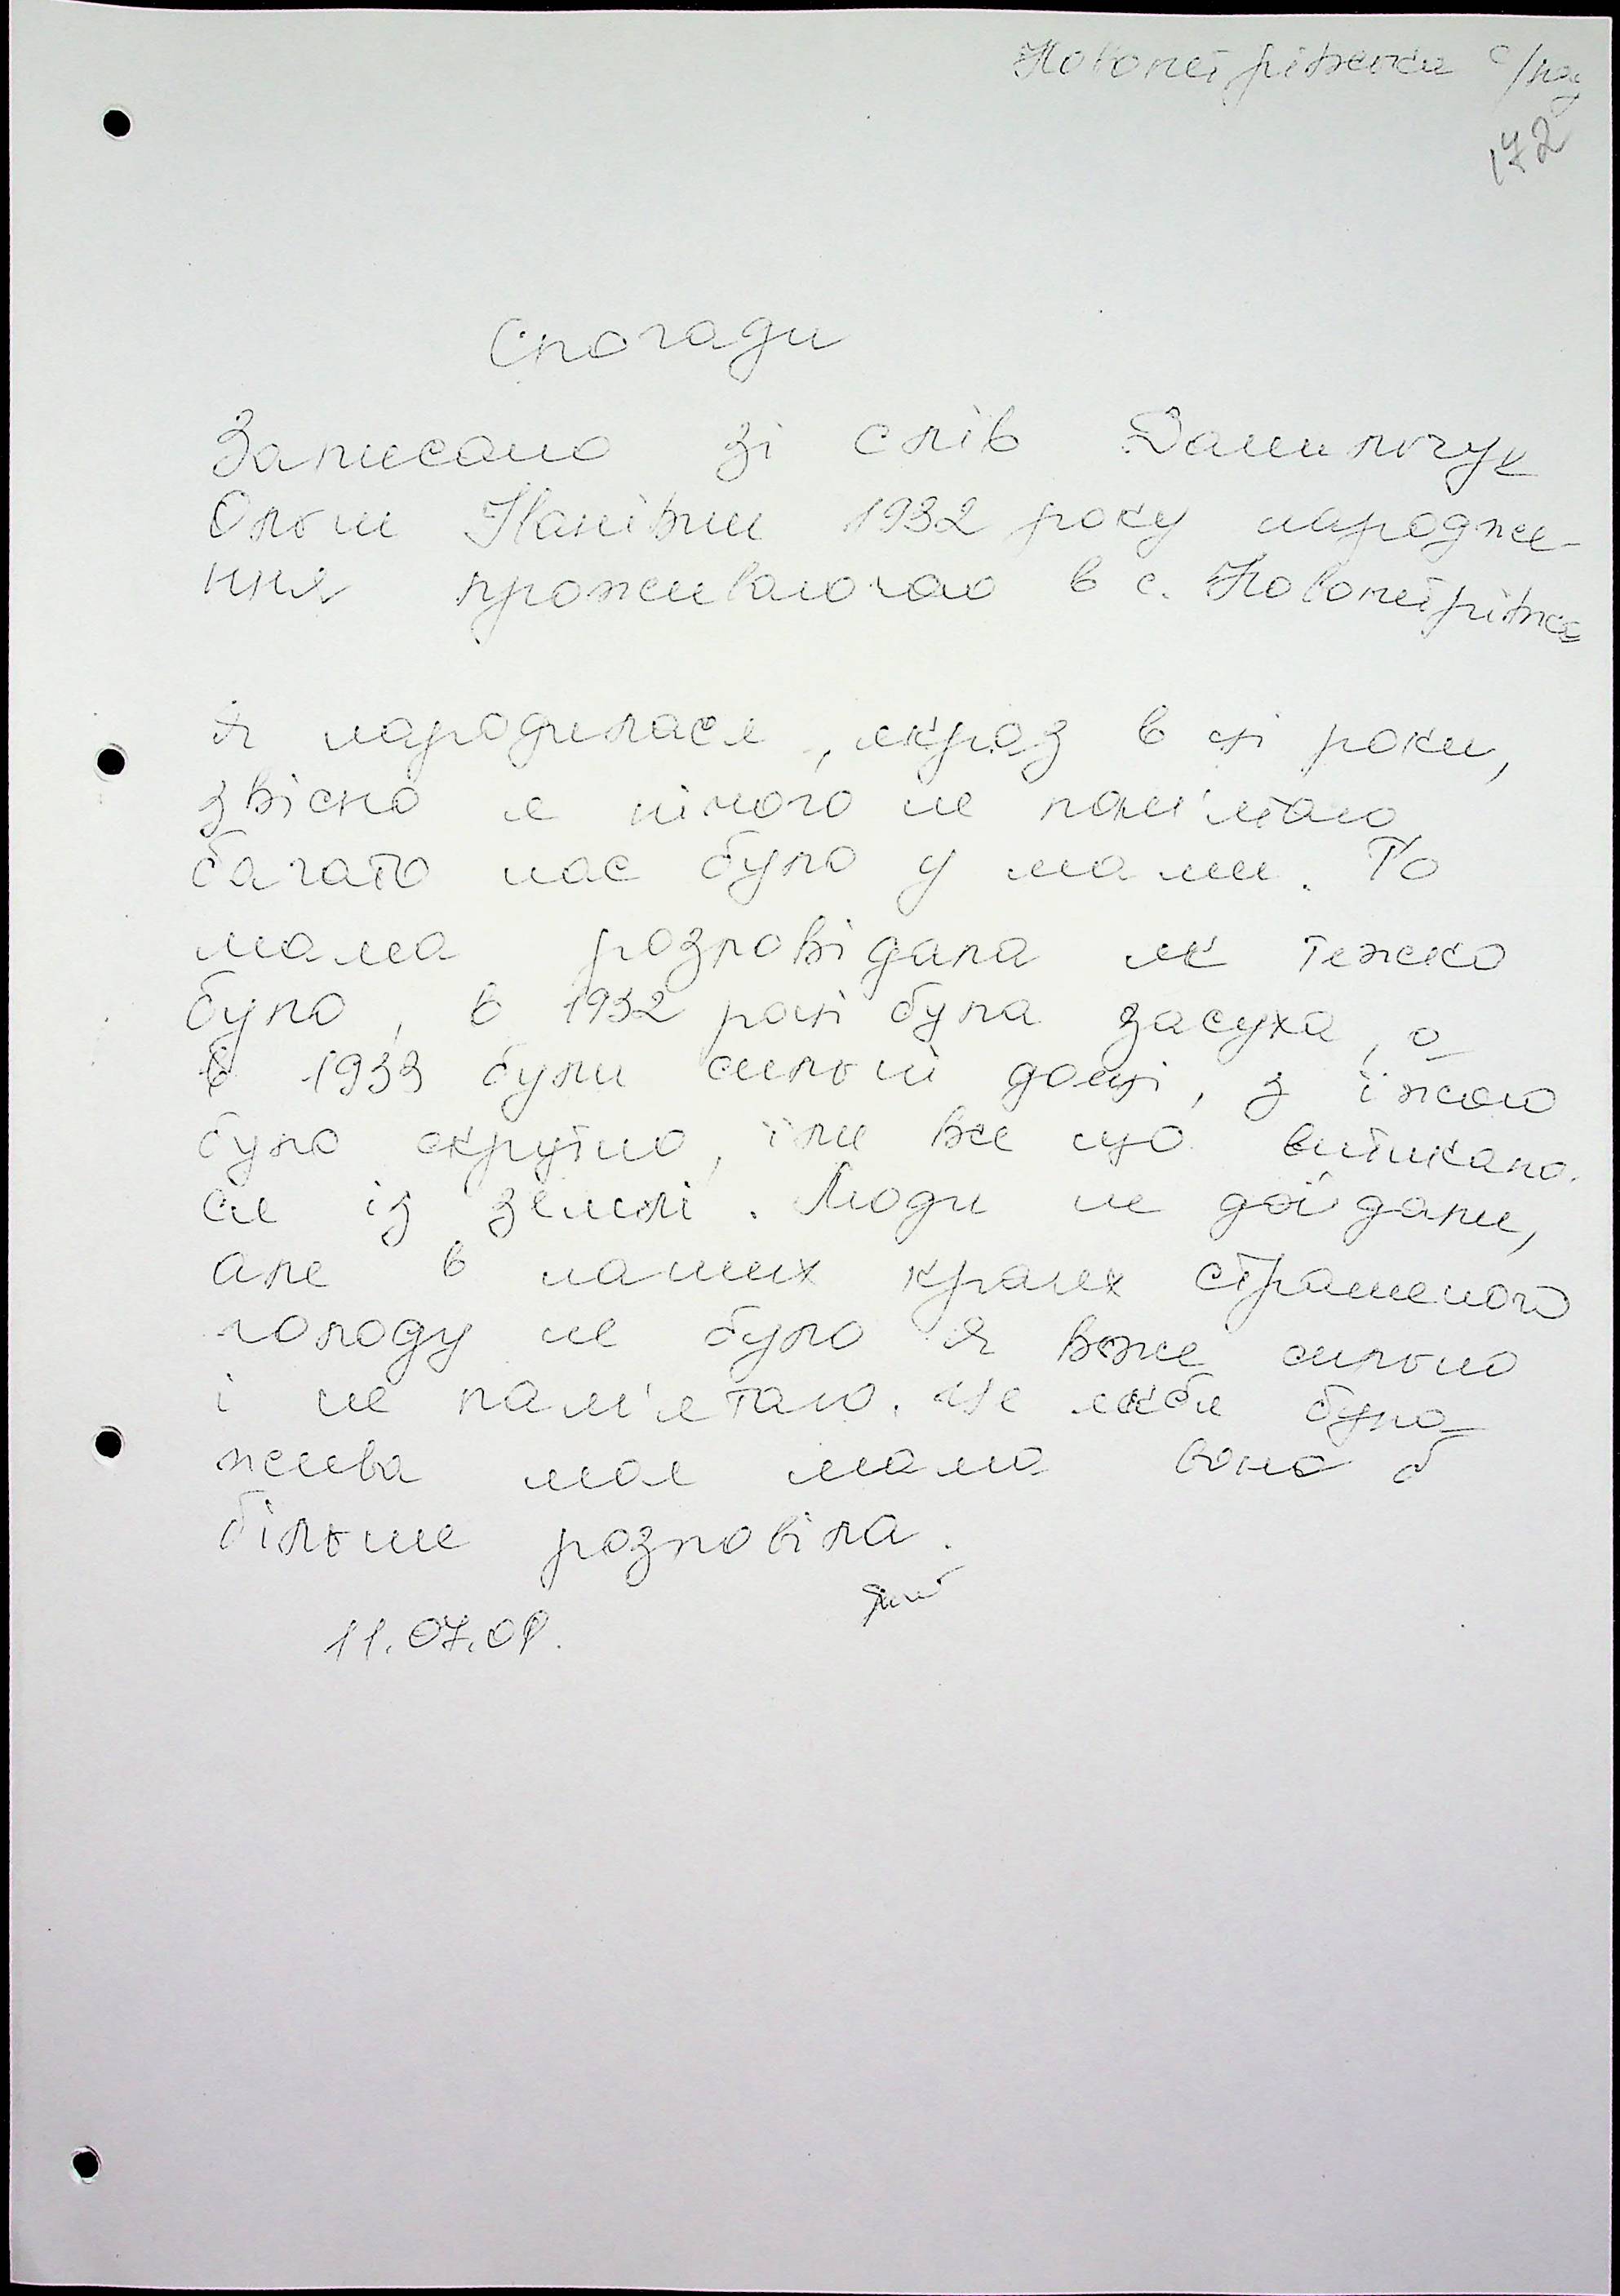 Новопетрівська с/рад
172
Спогади
Записано зі слів Данильчук
Ольги 1932 року народже-
ння проживаючою в с. Новопетрівка
Я народилася, якраз в ці роки,
звісно я нічого не пам'ятаю
багато нас було у мами. То
мама розповідала як тяжко
було, в 1932 році була засуха, а
в 1933 були сильні дощі, з їжою
було скрутно, їли все що витикало
ся із землі. Люди не доїдали,
але в наших краях страшеного
голоду не було я вже сильно
і не пам'ятаю. Це якби була
жива моя мама вона б
більше розповіла.
11.07.08.